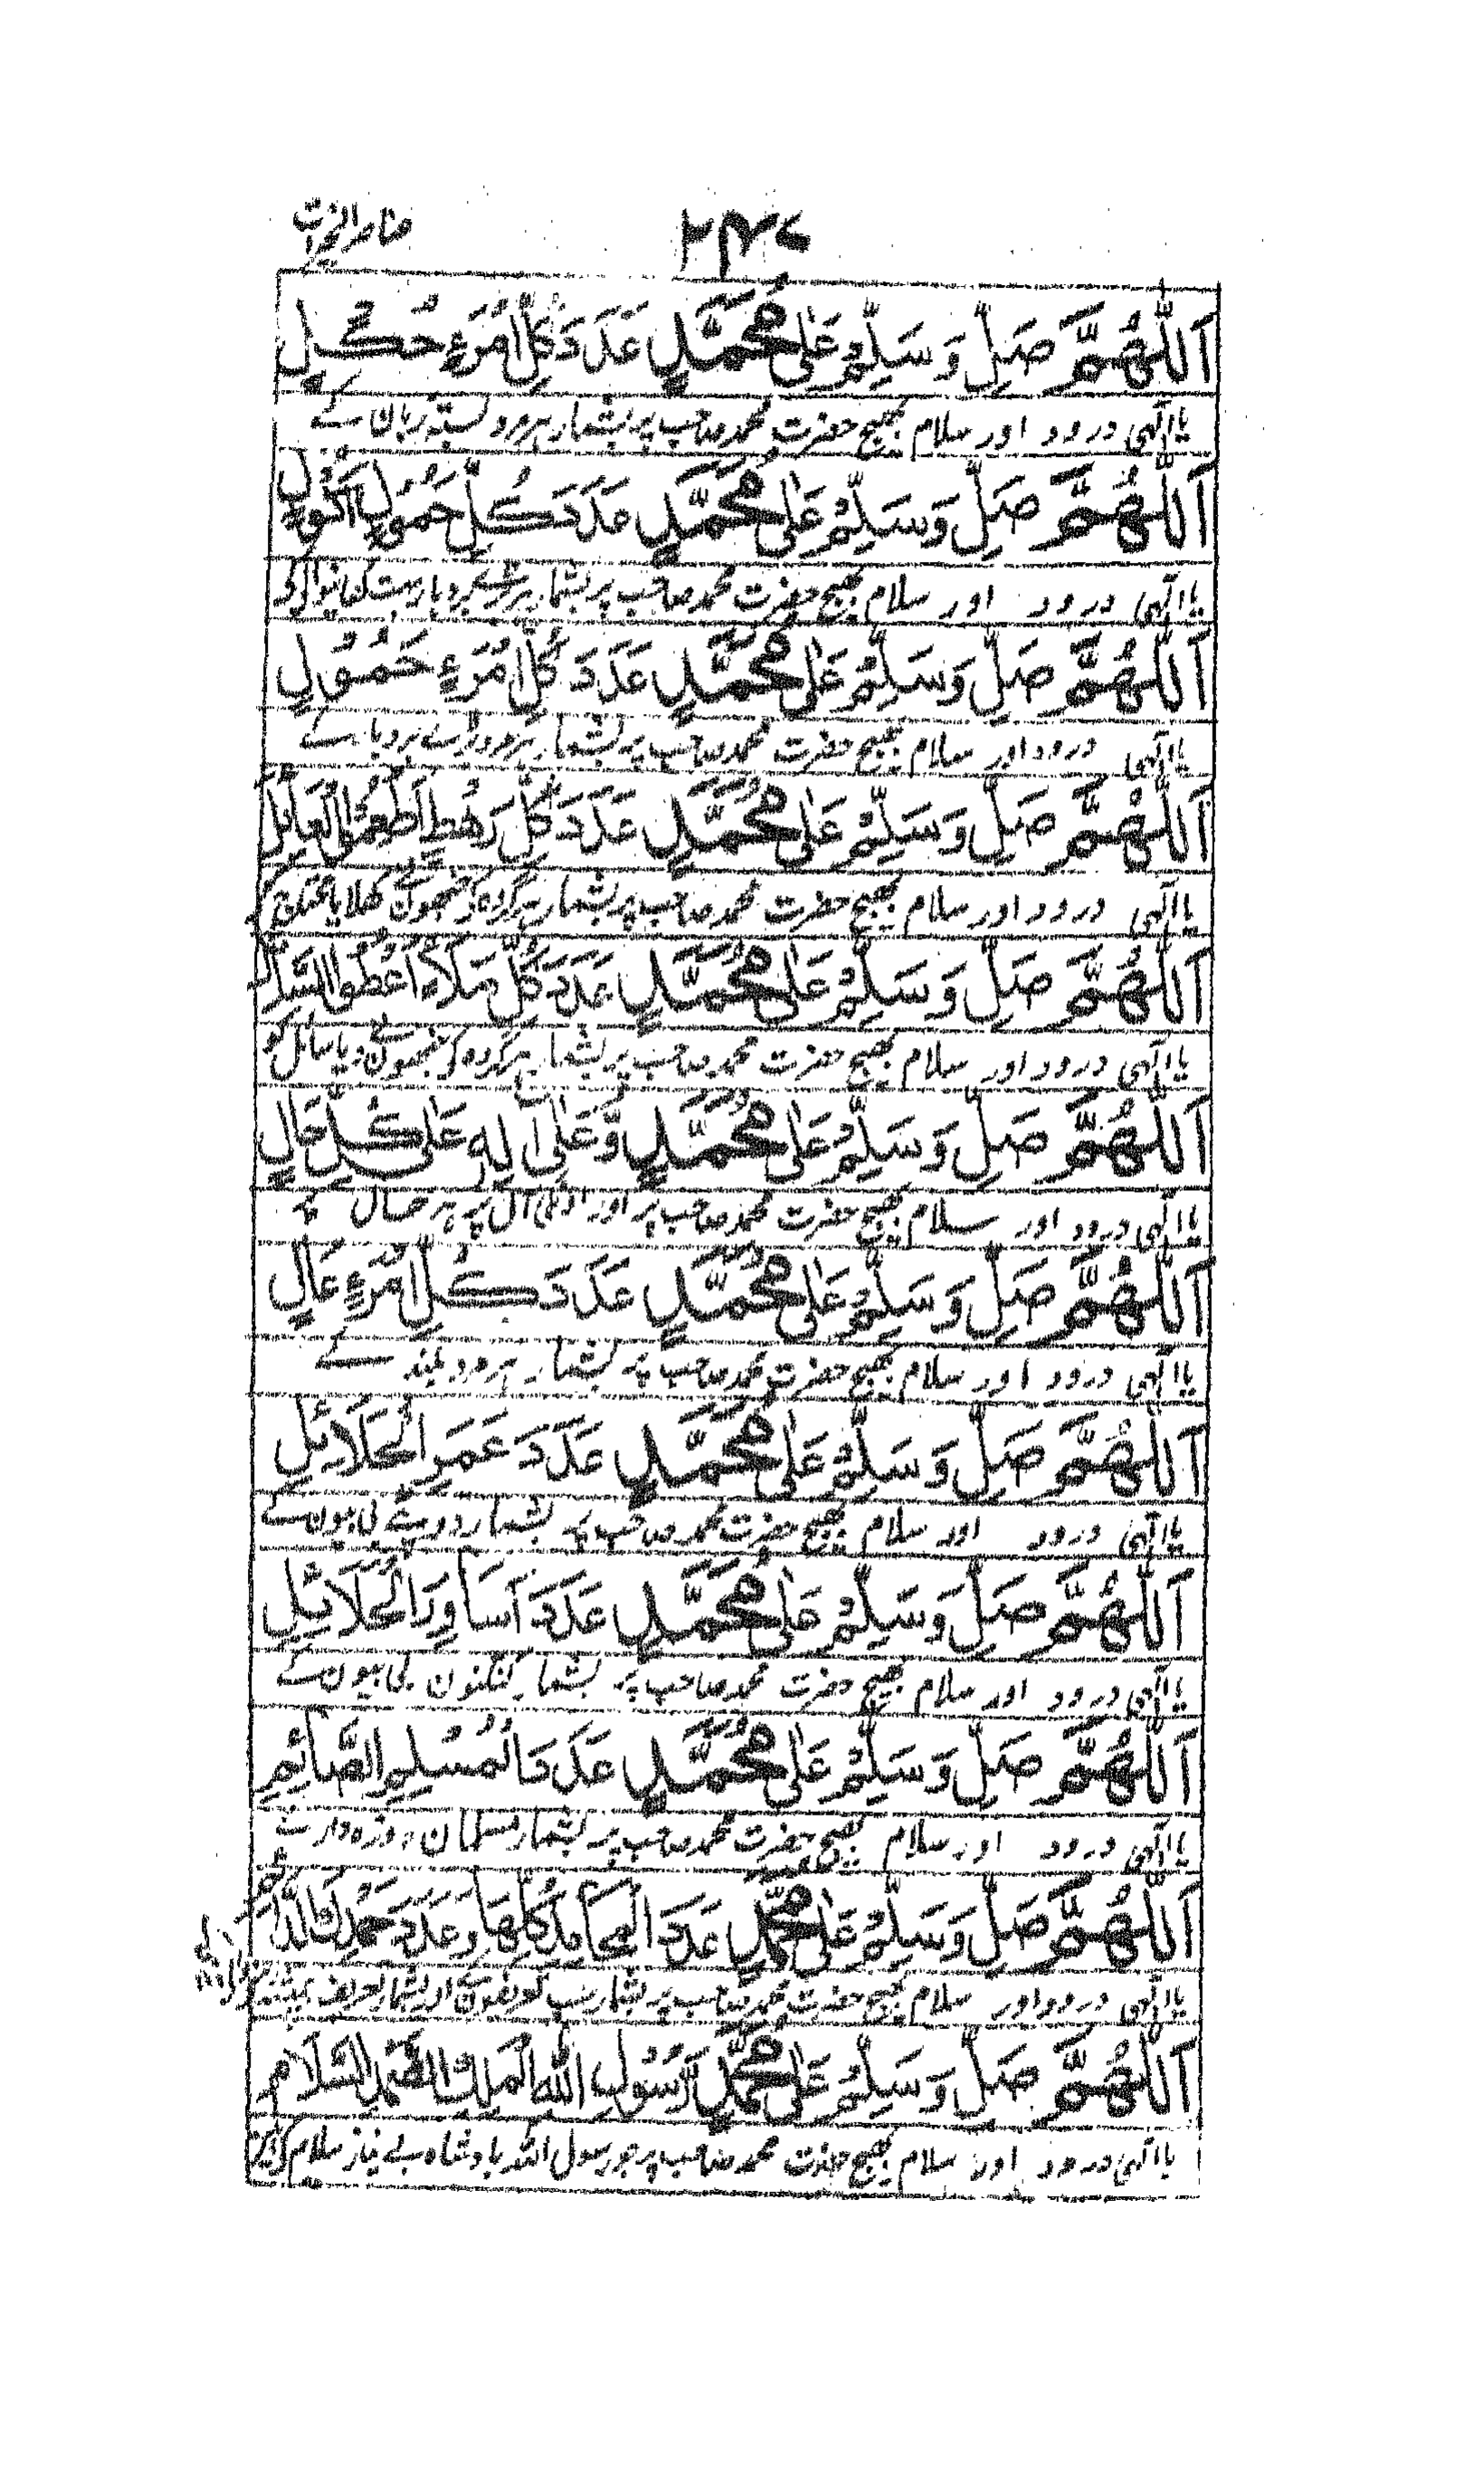 اَللّٰهُمَّ صَلِّ وَسَلِّمْ عَلٰى مُحَمَّدٍ عَدَدَ كُلِّ امْرَءٍ حُكْلٍ
یا الٰہی درود اور سلام بھیج حضرت محمد صاحب پر بشمار ہر مرد بستہ زبان کے
اَللّٰهُمَّ صَلِّ وَسَلِّمْ عَلٰى مُحَمَّدٍ عَدَدَ كُلِّ حَمُوْلٍ اَكُوْلٍ
یا الٰہی درود اور سلام بھیج حضرت محمد صاحب پر بشمار
اَللّٰهُمَّ صَلِّ وَسَلِّمْ عَلٰى مُحَمَّدٍ عَدَدَ كُلِّ امْرَءٍ حَمُوْلٍ
یا الٰہی درود اور سلام بھیج حضرت محمد صاحب پر بشمار ہر مرد بردبار کے
اَللّٰهُمَّ صَلِّ وَسَلِّمْ عَلٰى مُحَمَّدٍ عَدَدَ كُلِّ رَهْطٍ اَطْعَمُوا الْعَائِلَ
یا الٰہی درود اور سلام بھیج حضرت محمد صاحب پر بشمار ہر گروہ کے جنھوں نے کھلایا محتاج کو
اَللّٰهُمَّ صَلِّ وَسَلِّمْ عَلٰى مُحَمَّدٍ عَدَدَ كُلِّ مَلَاءٍ اَعْطَوُا السَّائِلَ
یا الٰہی درود اور سلام بھیج حضرت محمد صاحب پر بشمار ہر گروہ کے جنھوں نے دیا سائل کو
اَللّٰهُمَّ صَلِّ وَسَلِّمْ عَلٰى مُحَمَّدٍ وَّعَلٰى اٰلِهٖ عَلٰى كُلِّ حَالٍ
یا الٰہی درود اور سلام بھیج حضرت محمد صاحب پر اور اونکی آل پر ہر حال پر
اَللّٰهُمَّ صَلِّ وَسَلِّمْ عَلٰى مُحَمَّدٍ عَدَدَ كُلِّ امْرَءٍ عَالٍ
یا الٰہی درود اور سلام بھیج حضرت محمد صاحب پر بشمار ہر مرد بلند کے
اَللّٰهُمَّ صَلِّ وَسَلِّمْ عَلٰى مُحَمَّدٍ عَدَدَ خُمُرِ الْحَلَائِلِ
یا الٰہی درود اور سلام بھیج حضرت محمد صاحب پر بشمار دوپٹے بی بیون کے
اَللّٰهُمَّ صَلِّ وَسَلِّمْ عَلٰى مُحَمَّدٍ عَدَدَ اَسَاوِرِ الْحَلَائِلِ
یا الٰہی درود اور سلام بھیج حضرت محمد صاحب پر بشمار کنگنون بی بیون کے
اَللّٰهُمَّ صَلِّ وَسَلِّمْ عَلٰى مُحَمَّدٍ عَدَدَ الْمُسْلِمِ الصَّائِمِ
یا الٰہی درود اور سلام بھیج حضرت محمد صاحب پر بشمار مسلمان روزہ دار کے
اَللّٰهُمَّ صَلِّ وَسَلِّمْ عَلٰى مُحَمَّدٍ عَدَدَ الْمَحَامِدِ كُلِّهَا وَعَدَدَ حَمْدِكَ الدَّائِمِ
یا الٰہی درود اور سلام بھیج حضرت محمد صاحب پر بشمار سب تعریفون کے اور بشمار تعریف ہمیشہ
اَللّٰهُمَّ صَلِّ وَسَلِّمْ عَلٰى مُحَمَّدٍ رَّسُوْلِ اللّٰهِ الْمَلِكِ الصَّمَدِ السَّلَامِ
یا الٰہی درود اور سلام بھیج حضرت محمد صاحب پر جو رسول اللہ بادشاہ بے نیاز سلام